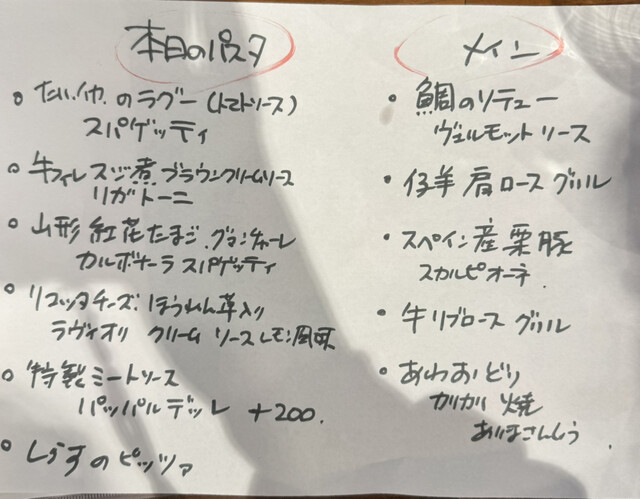 本日のパスタ
• たい、イカ、のラグー(トマトソース)
スパゲッティ
• 牛フィレ スジ煮 ブラウンクリームソース
リガトーニ
• 山形 紅花たまご、グアンチャーレ
カルボナーラ スパゲッティ
• リコッタチーズ、ほうれん草入り
ラヴィオリ クリーム ソース レモン風味
• 特製ミートソース
パッパルデッレ +200.
• しらすのピッツァ
メイン
• 鯛のソテュー
ヴェルモット ソース
• 仔羊 肩ロース グリル
• スペイン産栗豚
スカルピオーネ
• 牛リブロース グリル
• あわおどり
カリカリ 焼
ありまさんしょう